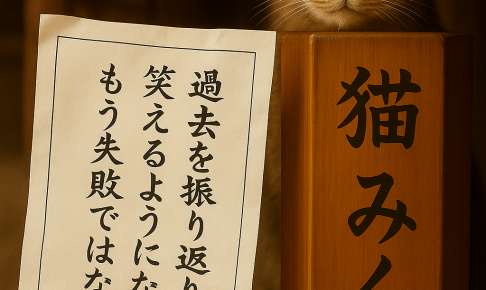 過去を振り返り
笑えるようにな
もう失敗ではな
猫み